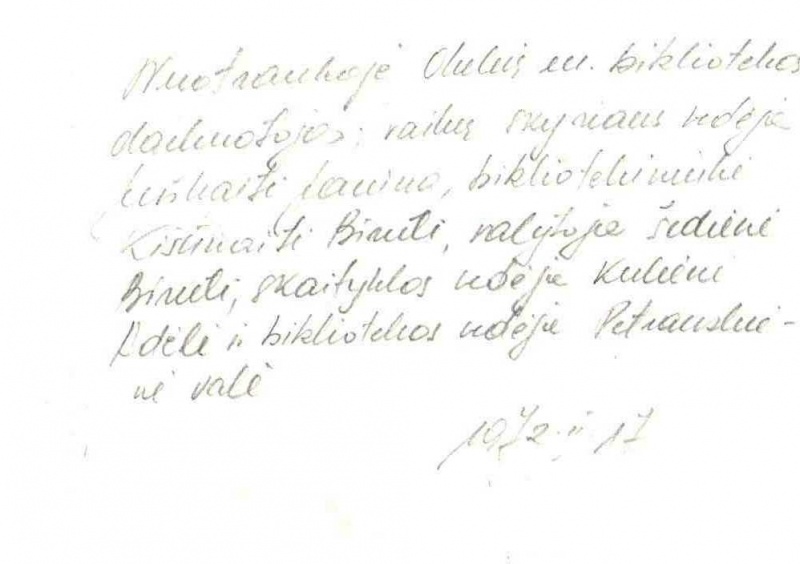 Nuotraukoje m. bibliotekos
darbuotojos; vaikų skyriaus vedėja
Janina, bibliotekininkė
Birutė, valytoja Šidienė
Birutė, skaityklos vedėja Kulienė
Adėlė ir bibliotekos vedėja Petrauskie-
nė Valė
1972 II 17